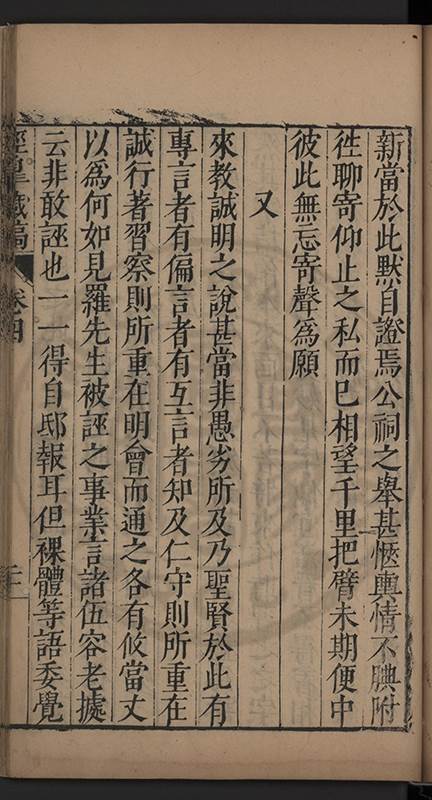 新當於此默自證焉公祠之舉甚愜輿情不腆附
徃聊寄仰止之私而已相望千里把臂未期便中
彼此無忘寄聲為願
又
來教誠明之說甚當非愚劣所及乃聖賢於此有
專言者有偏言者有互言者知及仁守則所重在
誠行著習察則所重在明會而通之各有攸當丈
以為何如見羅先生被誣之事業言諸伍容老據
云非敢誣也一一得自邸報耳但裸體等語委覺
涇臯藏稿
卷四